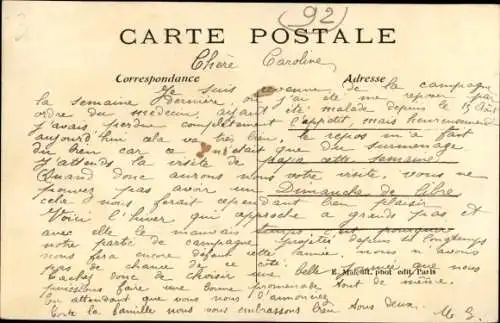 92
CARTE POSTALE
Chère Caroline,
Correspondance
Adresse
Je suis revenue de la campagne
la semaine dernière, où j'ai été me reposer par
ordre du médecin, ayant été malade depuis le 15 Août
j'avais perdue complètement l'appétit, mais heureusement
aujourd'hui cela va très bien, le repos m'a fait
du bien car ce n'était que du surmenage
J'attends la visite de papa cette semaine
Quand donc aurons nous votre visite, vous ne
pouvez pas avoir un Dimanche de libre
cela nous ferait cependant bien plaisir
Voici l'hiver qui approche à grands pas et
avec elle le mauvais temps c'est pourquoi
notre partie de campagne projetée depuis si longtemps
nous fera encore défaut cette année, nous n'avons
pas de chance de ce côté
Tachez donc de choisir une belle que nous
puissions faire une bonne promenade tout de même.
En attendant que vous nous l'annoncez
toute la famille nous vous embrassons bien tous deux.
M. G.
E. Malcuit, phot. édit. Paris